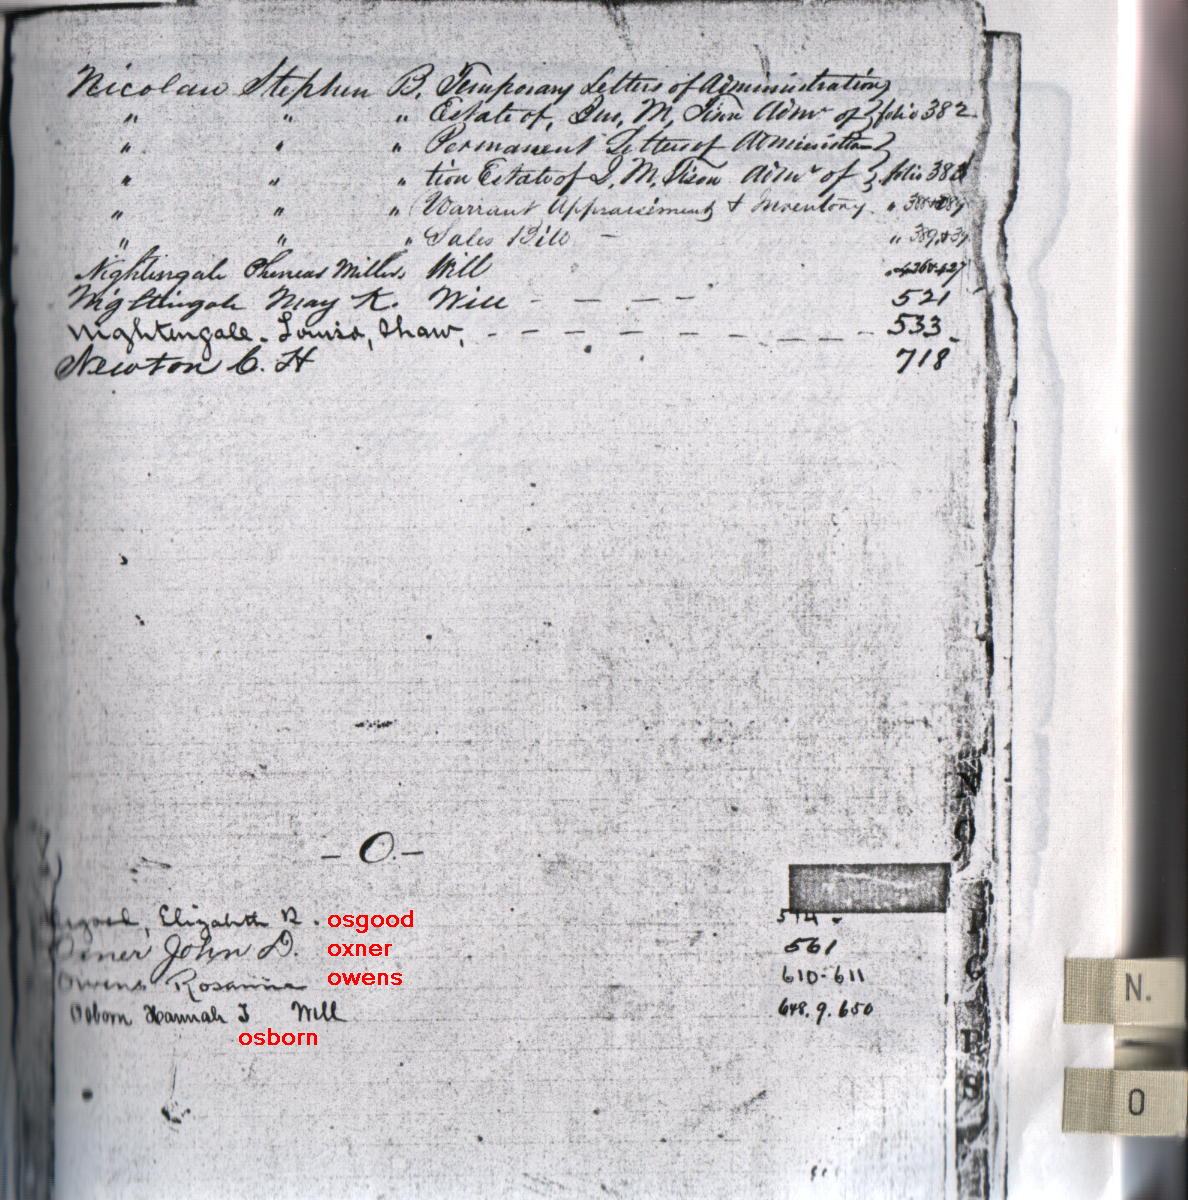 Nicolau Stephen B. Temporary Letters of Administration
" " " Estate of, M, Admr of } folio 382
" " " Permanent Letters of Administra
" " " tion Estate of J. M. Tison Admr of } folio 383
" " " Warrant Appraisement & Inventory "
" " " Sales Bill – " 389 &
Nightingale Phineas Miller Will
Nightingale May K. Will - - - - 521
Nightengale. Louisa, Shaw, - - - - - - - - 533
Newton C. H 718
N
O
- O. -
Elizabeth R. osgood 574
John D. oxner 561
Owens Rosanna owens 610-611
Osborn Hannah J Will 648. 9. 650
osborn
N.
O